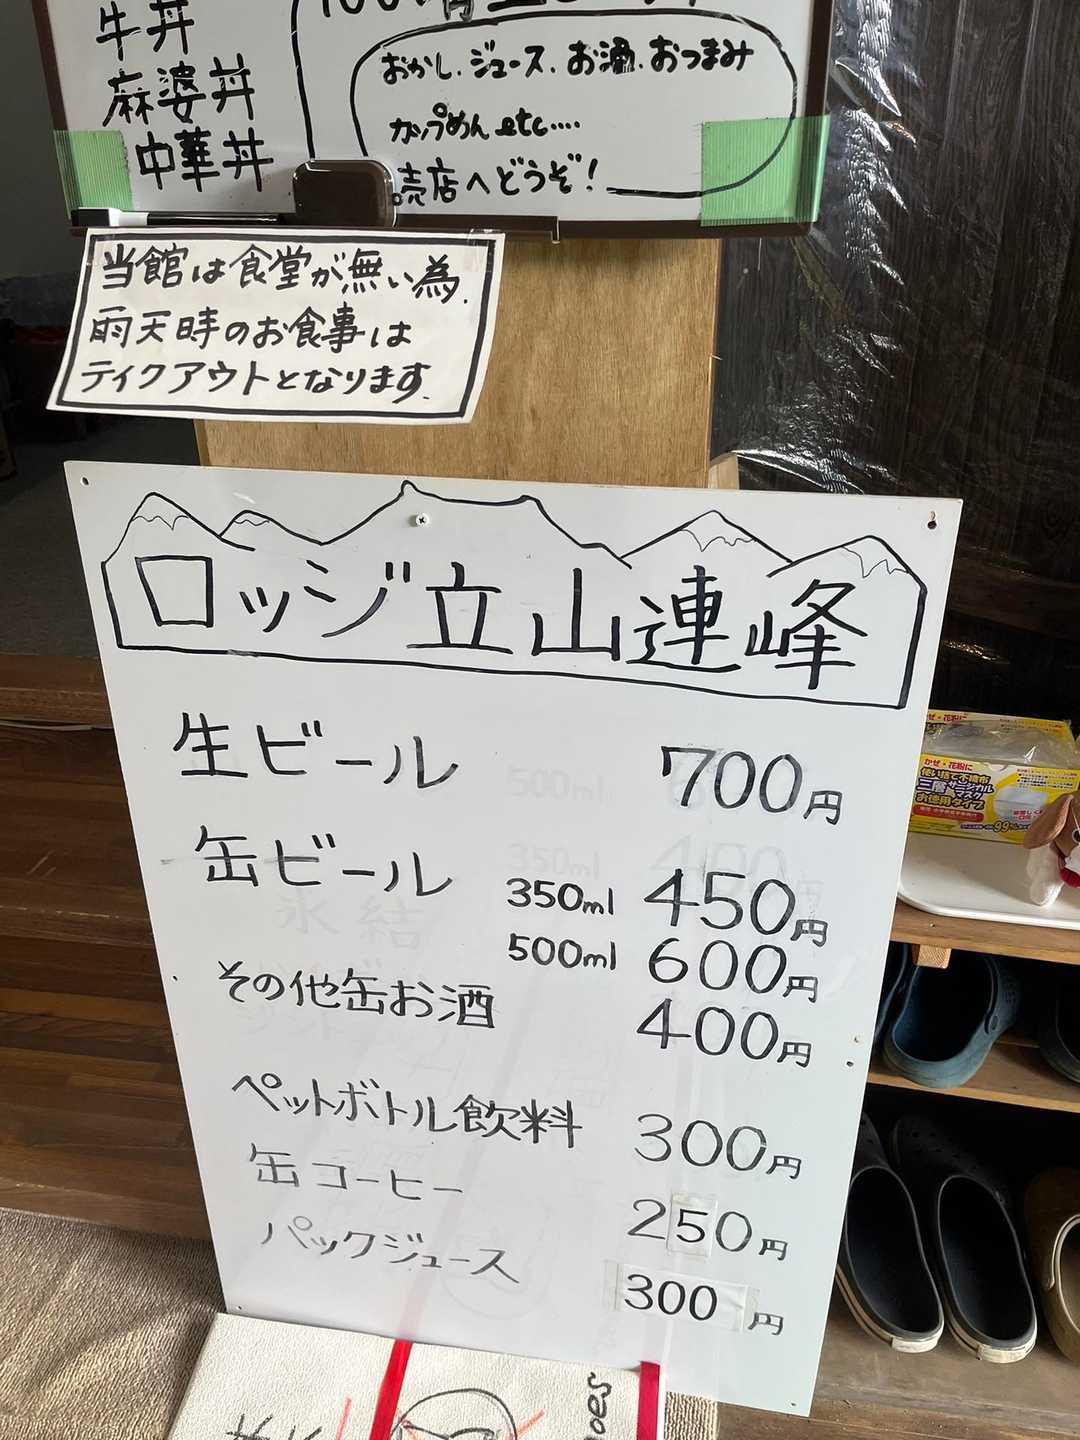 牛丼
麻婆丼
中華丼
おかし、ジュース、お酒、おつまみ
カップめん etc....
売店へどうぞ!
当館は食堂が無い為、
雨天時のお食事は
テイクアウトとなります。
ロッジ立山連峰
生ビール 700円
缶ビール 350ml 450円
500ml 600円
その他缶お酒 400円
ペットボトル飲料 300円
缶コーヒー 250円
パックジュース 300円
かぜ・花粉に
使い捨て不織布
三層サージカルマスク
お徳用タイプ
99%